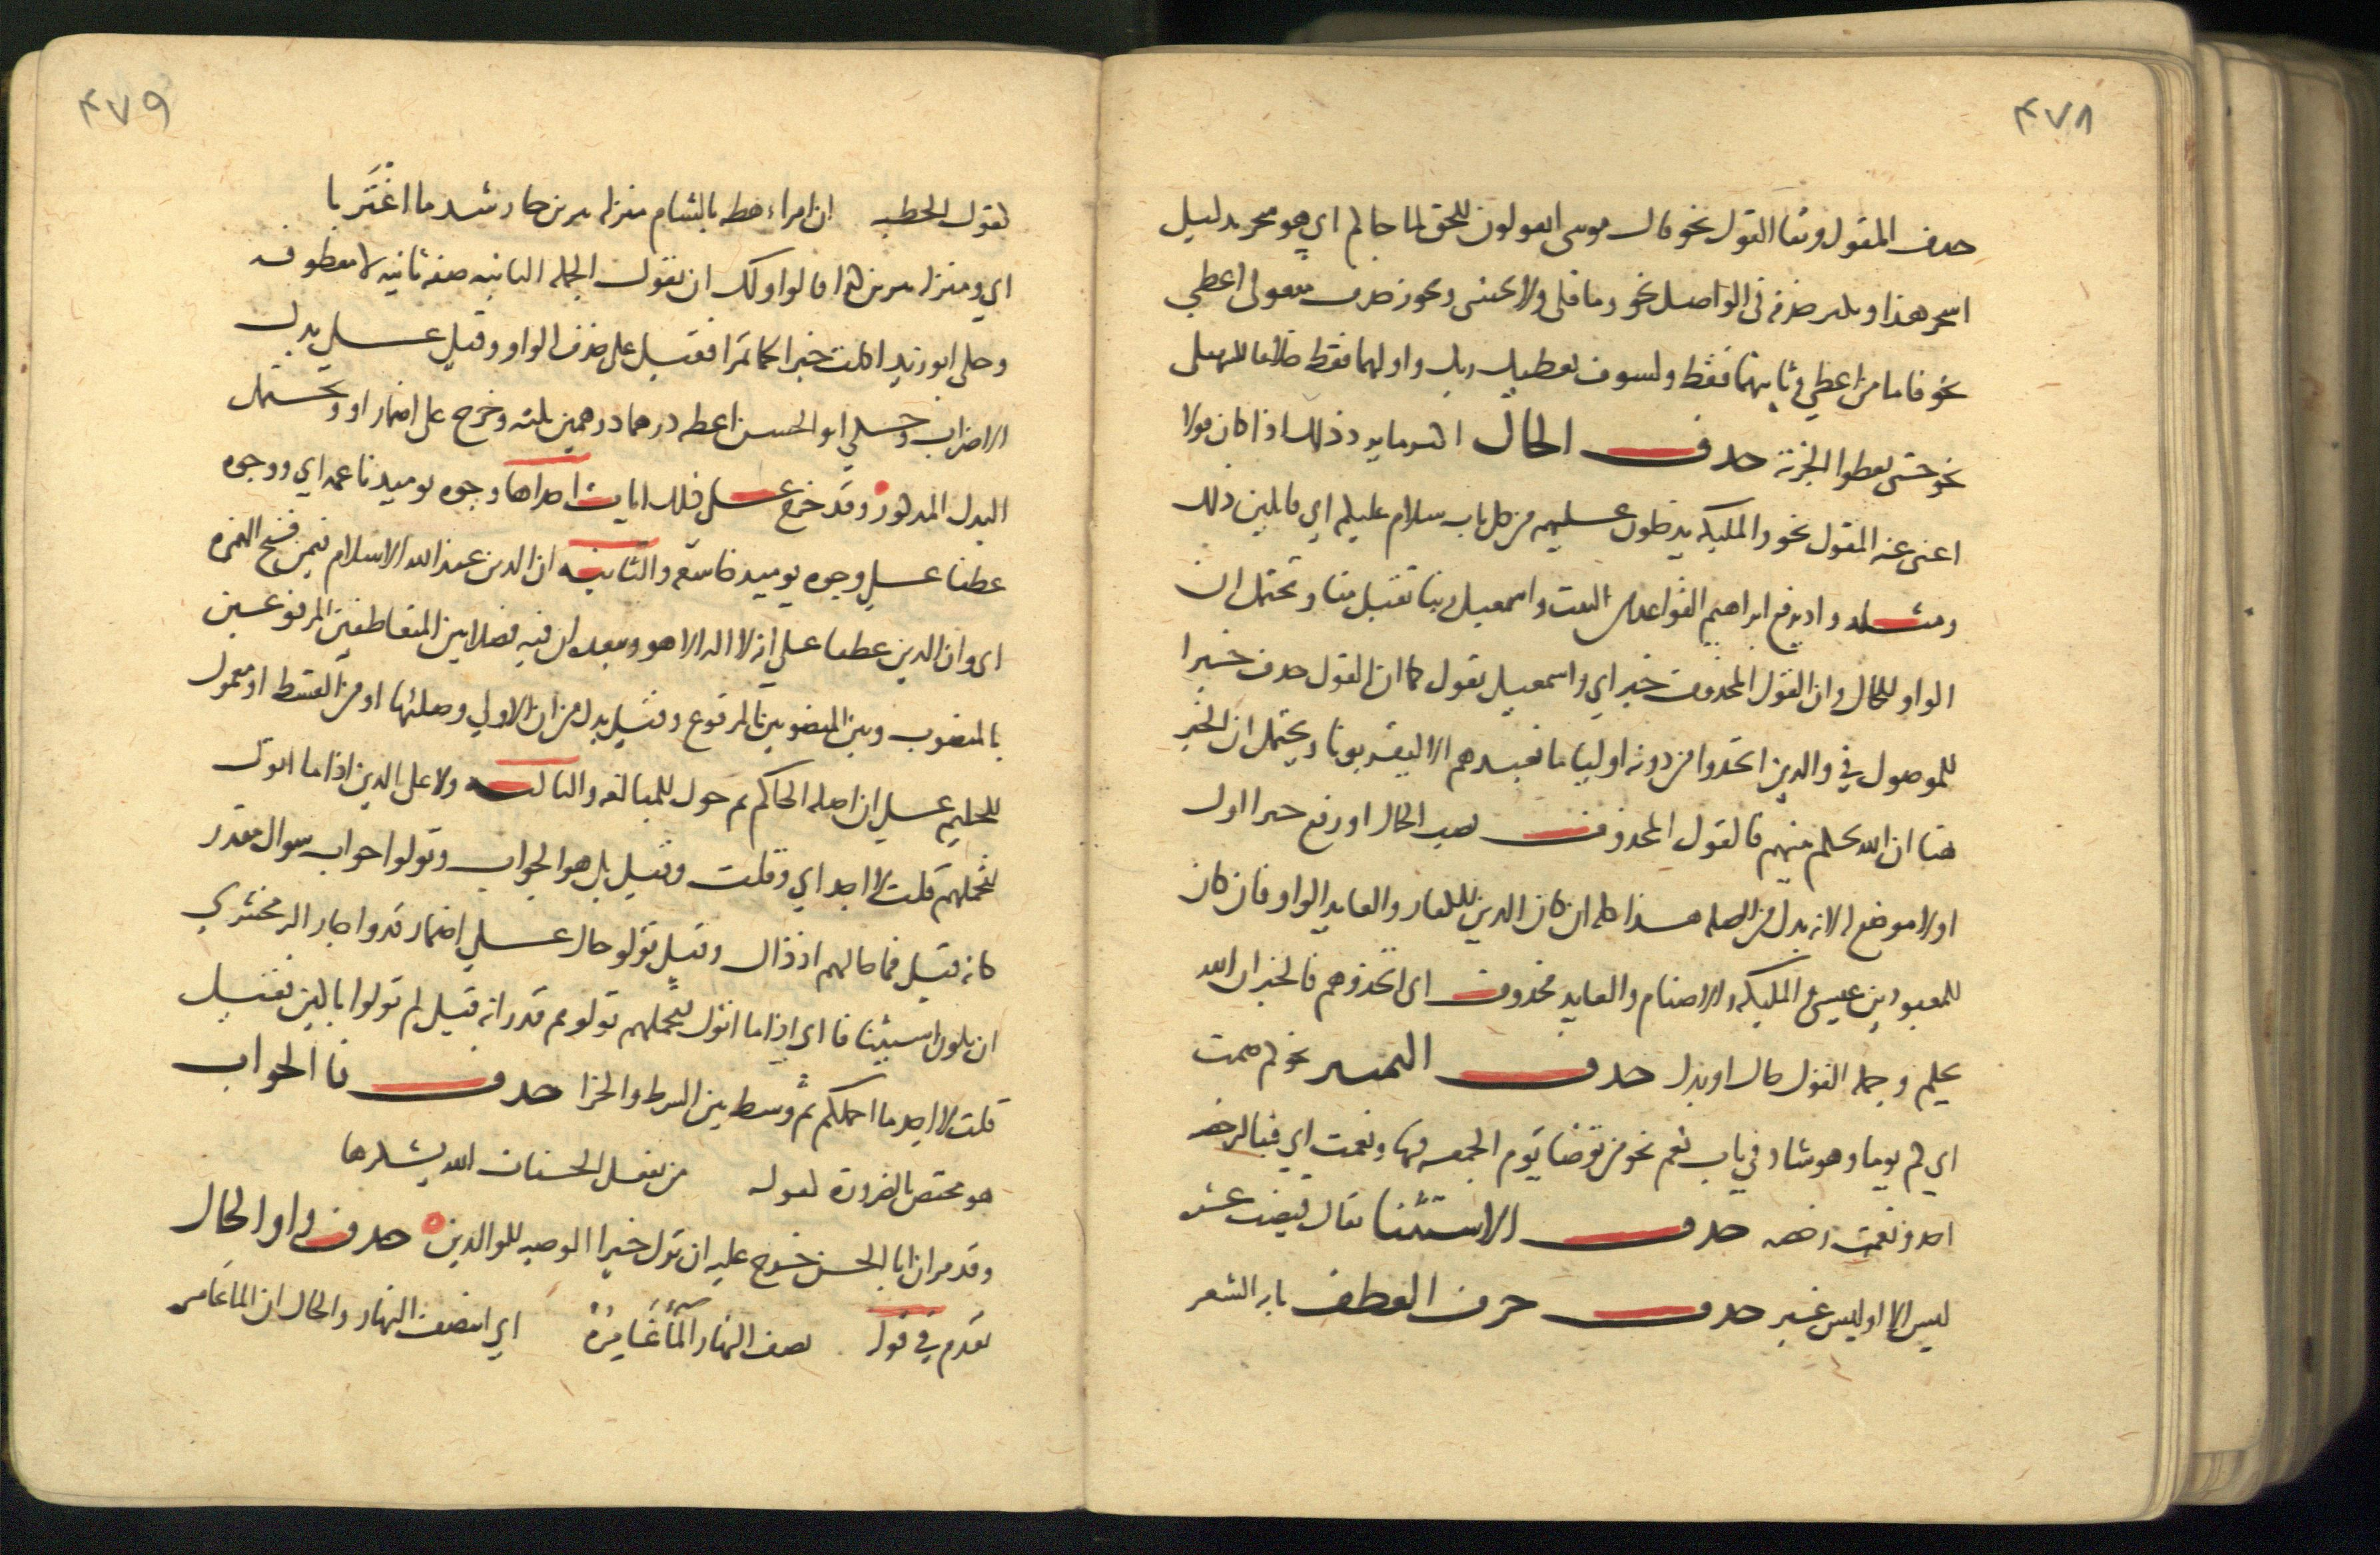 ٤٧٨
حذف المقول وبقا القول نحو قال موسى اتقولون للحق لما جاكم اي هو سحر بدليل
اسحر هذا ويكثر حذفه في الفواصل نحو وما قلى ولا تخشى ويجوز حذف مفعولي اعطى
نحو فاما من اعطى وثانيهما فقط ولسوف يعطيك ربك واولهما فقط خلافا للسهيلي
نحو حتى يعطوا الجزية حذف الحال اكثر ما يرد ذلك اذا كان قولا
اغنى عنه المقول نحو والمليكه يدخلون عليهم من كل باب سلام عليكم اي قايلين ذلك
ومثله واذ يرفع ابراهيم القواعد من البيت واسمعيل ربنا تقبل منا وتحتمل ان
الواو للحال وان القول المحذوف خبر اي واسمعيل يقول كما ان القول حذف خبرا
للموصول في والذين اتخذوا من دونه اوليا ما نعبدهم الا ليقربونا ويحتمل ان الخبر
هنا ان الله يحكم بينهم فالقول المحذوف نصب الحال او رفع خبرا اول
او لا موضع له لانه بدل من الصله هذا كله ان كان الذين للكفار والعايد الواو فان كان
للمعبودين عيسى والمليكه والاصنام والعايد محذوف اي اتخذوهم فالخبر ان الله
يحكم وجمله القول حال او بدل حذف التمييز نحو كم صمت
اي كم يوما وهو شاذ في باب نعم نحو من توضا يوم الجمعه فبها ونعمت اي فبالرخصه
اخذ ونعمت رخصه حذف الاستثنا يقال قبضت عشره
ليس الا وليس غير حذف حرف العطف بابه الشعر
٤٧٩
كقول الحطيه ان امراء رهطه بالشام منزله برمل يبرين جار شد ما اغتربا
اي ومنزله برمل يبرين كذا قالوا ولك ان تقول الجمله الثانيه صفه ثانيه لا معطوفه
وحكى ابو زيد اكلت خبزا لحما تمرا فقيل على حذف الواو وقيل على بدل
الاضراب وحكى ابو الحسن اعطه درهما درهمين ثلثه وخرج على اضمار او ويحتمل
البدل المذكور وقد خرج على ذلك ايات احداها وجوه يوميذ ناعمه اي ووجوه
عطفا على وجوه يوميذ خاشعه والثانيه ان الدين عند الله الاسلام فيمن فتح الهمزه
اي وان الدين عطفا على انه لا اله الا هو ويبعده ان فيه فصلا بين المتعاطفين المرفوعين
بالمنصوب وبين المنصوبين بالمرفوع وقيل بدل من ان الاولى وصلتها او من القسط او معمول
للحكيم على ان اصله الحاكم ثم حول للمبالغه والثالثه ولا على الذين اذا ما اتوك
لتحملهم قلت لا اجد اي وقلت وقيل بل هو الجواب وتولوا جواب سوال مقدر
كانه قيل فما حالهم اذ ذاك وقيل تولوا حال على اضمار قد واجاز الزمخشري
ان يكون استينافا اي اذا ما اتوك لتحملهم تولوا ثم قدر انه قيل لم تولوا باكين فقيل
قلت لا اجد ما احملكم ثم وسط بين الشرط والجزا حذف فا الجواب
هو مختص بالضرورة كقوله من يفعل الحسنات الله يشكرها
وقد مر ان ابا الحسن خرج عليه ان ترك خيرا الوصيه للوالدين حذف واو الحال
تقدم في قوله نصف النهار الماء غامره اي انتصف النهار والحال ان الماء غامر